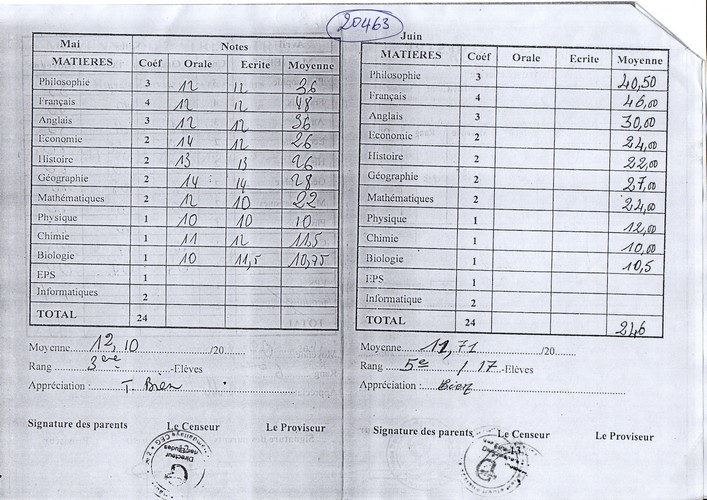 20463
Mai Notes
MATIERES Coéf Orale Ecrite Moyenne
Philosophie 3 12 12 36
Français 4 12 12 48
Anglais 3 12 12 36
Economie 2 14 12 26
Histoire 2 13 13 26
Géographie 2 14 14 28
Mathématiques 2 12 10 22
Physique 1 10 10 10
Chimie 1 11 12 11,5
Biologie 1 10 11,5 10,75
EPS 1
Informatiques 2
TOTAL 24
Moyenne 12,10 /20
Rang 3ème -Elèves
Appréciation : T. Bien
Signature des parents Le Censeur Le Proviseur
Directeur des Etudes
Juin
MATIERES Coéf Orale Ecrite Moyenne
Philosophie 3 40,50
Français 4 46,00
Anglais 3 30,00
Economie 2 24,00
Histoire 2 22,00
Géographie 2 27,00
Mathématiques 2 24,00
Physique 1 12,00
Chimie 1 10,00
Biologie 1 10,5
EPS 1
Informatique 2
TOTAL 24 246
Moyenne 11,71 /20
Rang 5e / 17 -Elèves
Appréciation : Bien
Signature des parents Le Censeur Le Proviseur